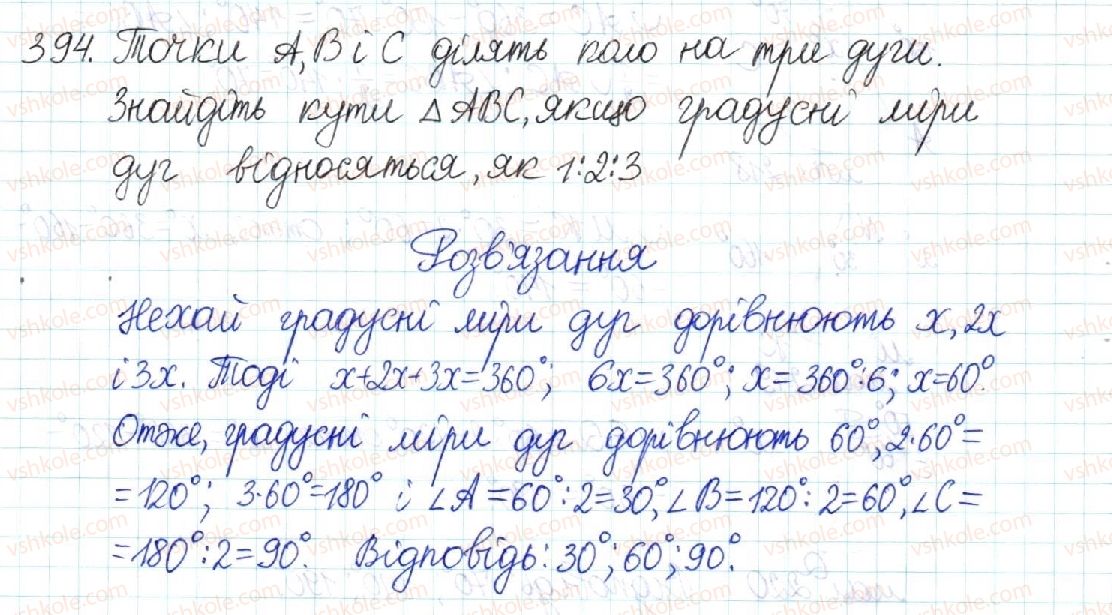 394. Точки А, В і С ділять коло на три дуги.
Знайдіть кути △ABC, якщо градусні міри
дуг відносяться, як 1:2:3
Розв'язання
Нехай градусні міри дуг дорівнюють x, 2x
і 3x. Тоді x+2x+3x=360°; 6x=360°; x=360°:6; x=60°.
Отже, градусні міри дуг дорівнюють 60°, 2·60°=
=120°; 3·60°=180° і ∠A=60°:2=30°, ∠B=120°:2=60°, ∠C=
=180°:2=90°. Відповідь: 30°; 60°; 90°.